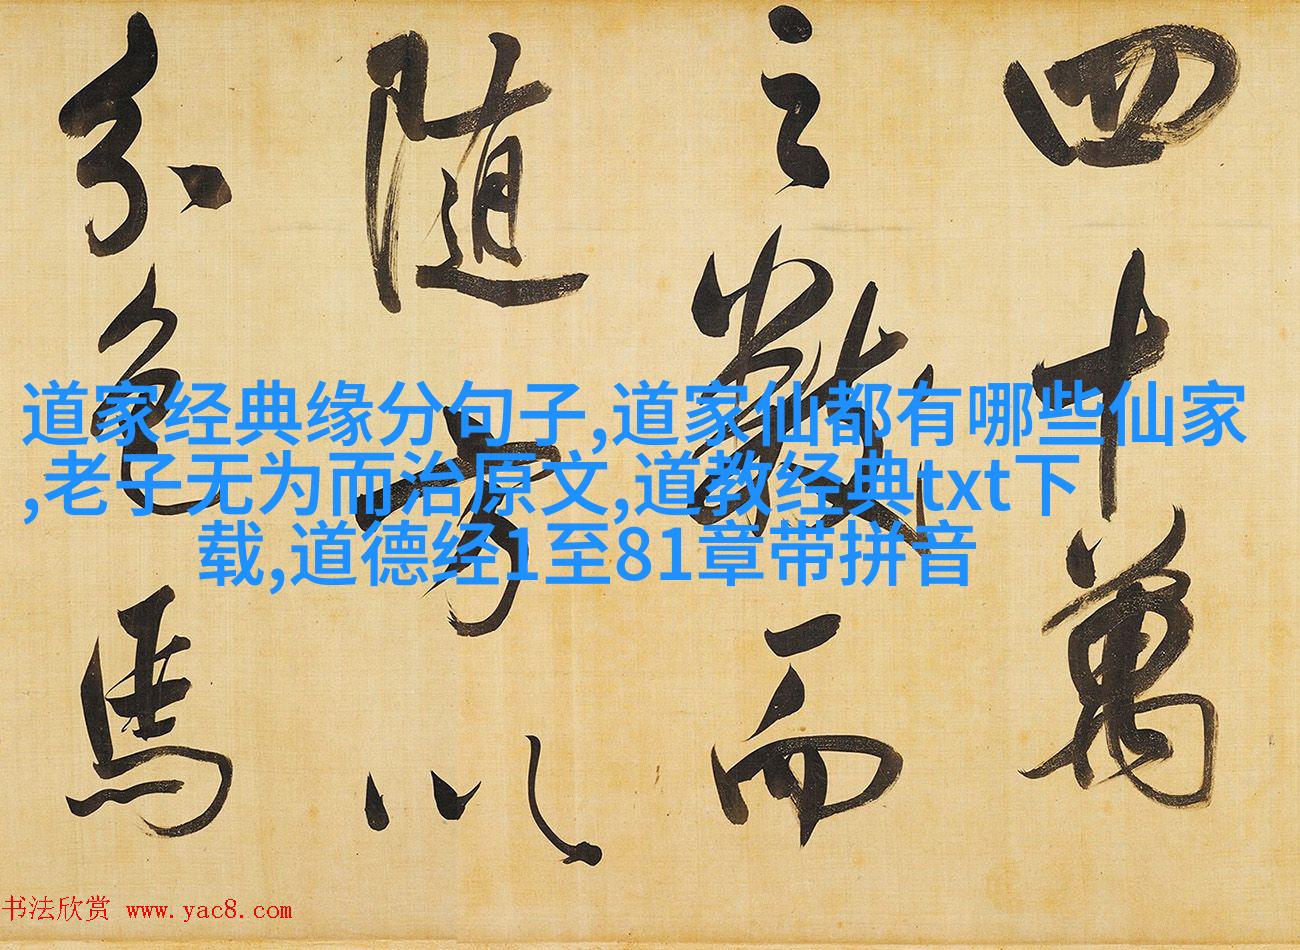 四十萬
之數而
随方以
分色馬
道家经典缘分句子,道家仙都有哪些仙家
,老子无为而治原文,道教经典txt下
载,道德经1至81章带拼音
书法欣赏 www.yac8.com